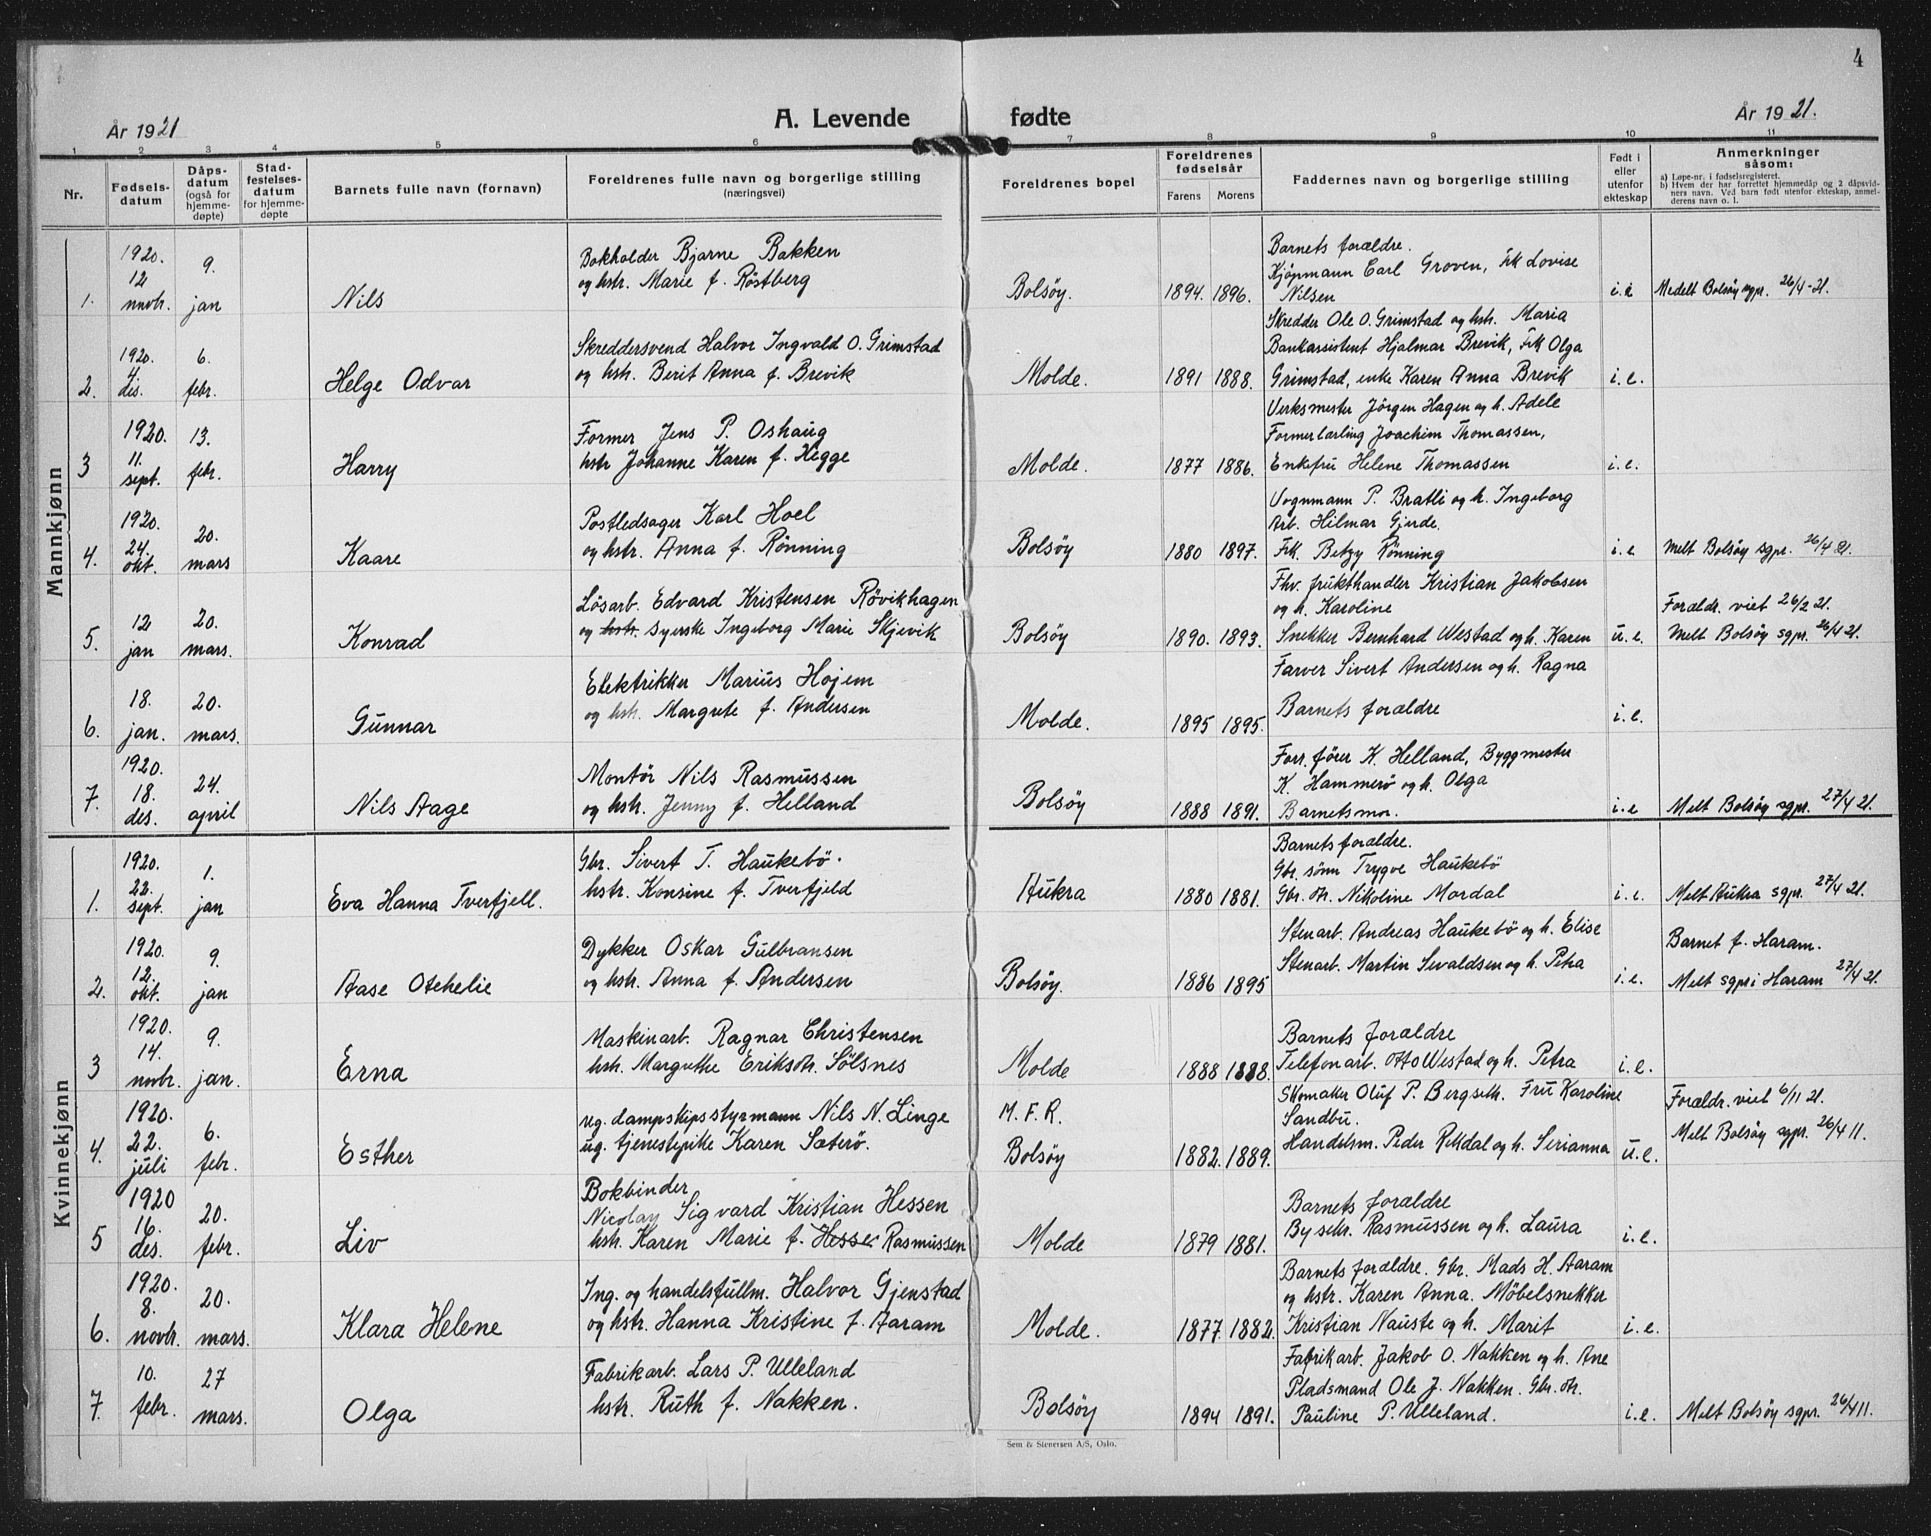 4
År 1921
A. Levende fødte
År 1921.
1 2 3 4 5 6 7 8 9 10 11
Nr.
Fødsels-
datum
Dåps-
datum
(også for
hjemme-
døpte)
Stad-
festelses-
datum
for hjemme-
døpte
Barnets fulle navn (fornavn)
Foreldrenes fulle navn og borgerlige stilling
(næringsvei)
Foreldrenes bopel
Foreldrenes
fødselsår
Farens Morens
Faddernes navn og borgerlige stilling
Født i
eller
utenfor
ekteskap
Anmerkninger
såsom:
a) Løpe-nr. i fødselsregisteret.
b) Hvem der har forrettet hjemmedåp og 2 dåpsvid-
ners navn. Ved barn født utenfor ekteskap, anmel-
derens navn o. l.
Mannkjønn
1.
1920.
12
novbr.
9.
jan
Nils
Bokholder Bjarne Bakken
og hstr. Marie f. Röstberg
Bolsöy.
1894. 1896.
Barnets forældre.
Kjöpmann Carl Groven, Frk Lovise
Nilsen
i.e
Medelt Bolsöy sgpr. 26/4-21.
2.
1920.
4
des.
6.
febr.
Helge Odvar
Skreddersvend Halvor Ingvald O. Grimstad
og hstr. Berit Anna f. Brevik
Molde.
1891 1888.
Skredder Ole O. Grimstad og hstr. Maria
Bankassistent Hjalmar Brevik, Frk Olga
Grimstad, enke Karen Anna Brevik
i.e.
3
1920.
11.
sept.
13.
febr.
Harry
Former Jens P. Oshaug
hstr Johanne Karen f. Hegge
Molde.
1877 1886.
Verksmester Jörgen Hagen og h. Adele
Formerlærling Joachim Thomassen,
Enkefru Helene Thomassen
i.e.
4.
1920.
24.
okt.
20.
mars
Kaare
Postledsager Karl Hoel
og hstr. Anna f. Rönning
Bolsöy
1880 1897.
Vognmann P. Bratli og h. Ingeborg
Arb. Hilmar Gjerde.
Frk. Betzy Rönning
i.e
Melt Bolsöy sgpr. 26/4 21.
5.
12
jan
20.
mars.
Konrad
Lösarb. Edvard Kristensen Rövikhagen
og hstr. syerske Ingeborg Marie Skjevik
Bolsöy
1890. 1893.
Fhv. frukthandler Kristian Jakobsen
og h. Karoline
Snekker Bernhard Westad og h. Karen
u.e.
Forældr. viet 26/2 21.
Melt Bolsöy sgpr. 26/4 21.
6.
18.
jan.
20.
mars.
Gunnar
Elektrikker Marius Hojem
og hstr. Margrete f. Andersen
Molde.
1895 1895.
Farver Sivert Andersen og h. Ragna
Barnets forældre
i.e.
7.
1920.
18.
des.
24.
april
Nils Aage
Montör Nils Rasmussen
og hstr. Jenny f. Helland
Bolsöy
1888 1891.
Forr.förer K. Helland, Byggmester
K. Hammerö og h. Olga
Barnets mor.
i.e
Melt Bolsöy sgpr. 27/4 21.
Kvinnekjønn
1.
1920.
22.
sept.
1.
jan
Eva Hanna Tverfjell.
Gbr. Sivert T. Haukebö.
hstr. Konsine f. Tverfjeld
Aukra
1880 1881.
Barnets forældre.
Gbr. sönn Trygve Haukebö
Gbr. dtr. Nikoline Mordal
i.e.
Melt Aukra sgpr. 27/4 21.
2.
1920.
12.
okt.
9.
jan
Aase Otehelie
Dykker Oskar Gulbransen
og hstr. Anna f. Andersen
Bolsöy.
1886 1895
Stenarb. Andreas Haukebö og h. Elise
Stenarb. Martin Sevaldsen og h. Petra
i.e.
Barnet f. Haram.
Melt sgpr i Haram 27/4 21.
3
1920.
14.
novbr.
9.
jan.
Erna
Maskinarb. Ragnar Christensen
hstr. Margrethe Eriksdtr. Sölsnes
Molde
1888 1888.
Barnets forældre
Telefonarb. Otto Westad og h. Petra
i.e.
4.
1920.
22.
juli
6.
febr.
Esther
ug. dampskipsstyrmann Nils N. Linge
ug. tjenestepike Karen Sæterö.
M. F. R.
Bolsöy
1882. 1889.
Skomaker Oluf P. Bergseth. Fru Karoline
Sandbu.
Handelsm. Peder Rekdal og h. Serianna
u.e.
Forældr. viet 6/11 21.
Melt Bolsöy sgpr. 26/4 11.
5
1920
16.
des.
20.
febr.
Liv
Bokbinder
Nicolay Sigvard Kristian Hessen
hstr. Karen Marie f. Hessen Rasmussen
Molde
1879 1881.
Barnets forældre
Bysekr. Rasmussen og h. Laura
i.e.
6.
1920.
8.
novbr.
20.
mars.
Klara Helene
Ing. og handelsfullm. Halvor Gjenstad
og hstr. Hanna Kristine f. Aaram
Molde.
1877. 1882.
Barnets forældre. Gbr. Mads H. Aaram
og hstr. Karen Anna. Möbelsnekker
Kristian Nauste og h. Marit
i.e.
7.
10.
febr.
27
mars.
Olga
Fabrikarb. Lars P. Ulleland
hstr. Ruth f. Nakken.
Bolsöy
1894 1891.
Fabrikarb. Jakob O. Nakken og h. Ane
Pladsmand Ole J. Nakken. Gbr. dtr.
Pauline P. Ulleland.
i.e.
Melt Bolsöy sgpr. 26/4 11.
Sem & Stenersen A/S, Oslo.